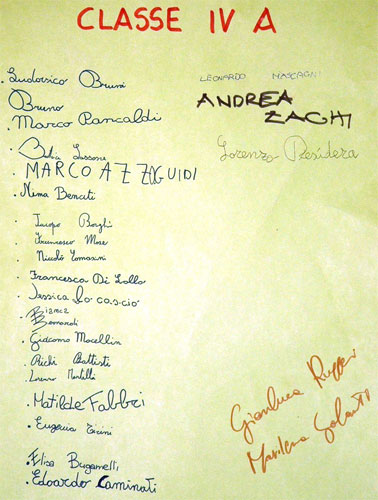 CLASSE IV A
Ludovico Bruni
Bruno
Marco Pancaldi
MARCO AZZOGUIDI
Nima Benati
Jacopo Borghi
Francesco More
Nicolò Tomasini
Francesca Di Lollo
Jessica Lo cascio
Bianca
Bernardi
Giacomo Macellin
Richi Battisti
Lorenzo Martelli
Matilde Fabbri
Eugenia Tirini
Elisa Buganelli
Edoardo Caminati
LEONARDO MASCAGNI
ANDREA
ZAGHI
Lorenzo Residera
Gianluca Ruggeri
Marilena